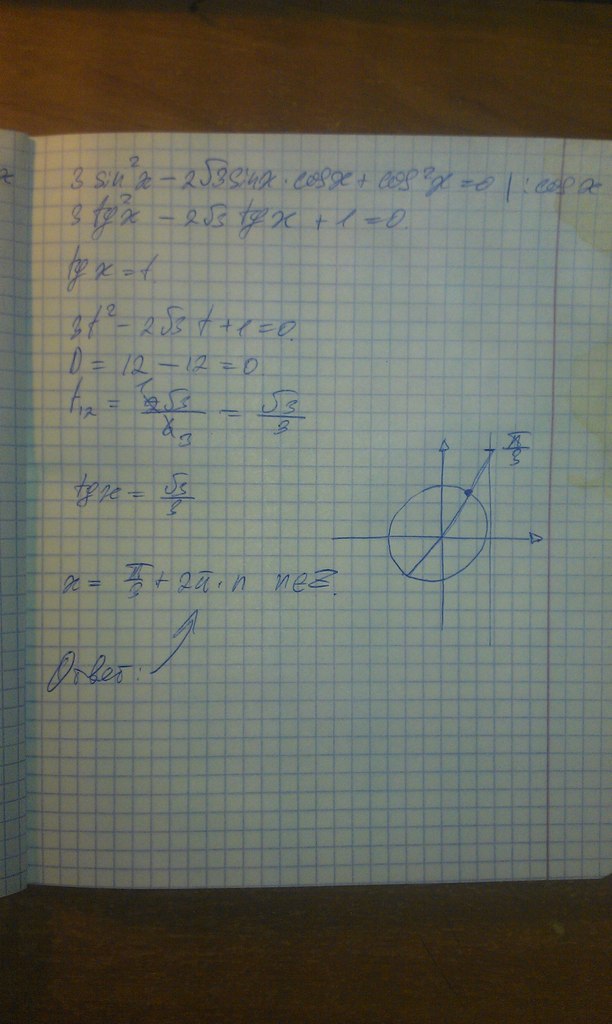 x
3 sin²x − 2√3 sinx · cosx + cos²x = 0 | : cosx
3 tg²x − 2√3 tgx + 1 = 0.
tg x = t.
3t² − 2√3 t + 1 = 0.
D = 12 − 12 = 0
t₁₂ = 2√3/6 1 3 = √3/3
tgx = √3/3
π/3
x = π/3 + 2π · n n∈Z.
Ответ: